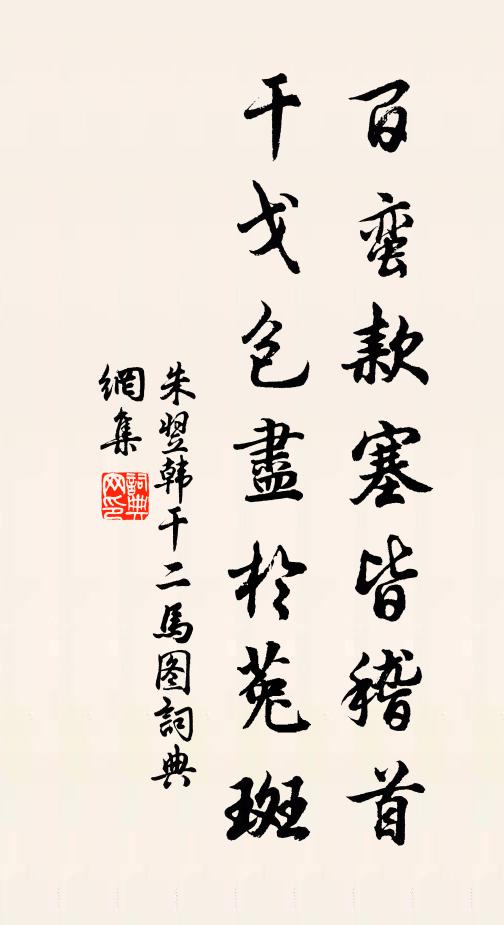 百蛮款塞皆稽首
干戈包盡於菟斑
朱翌韩干二馬图詞典
網集
詞典
网印